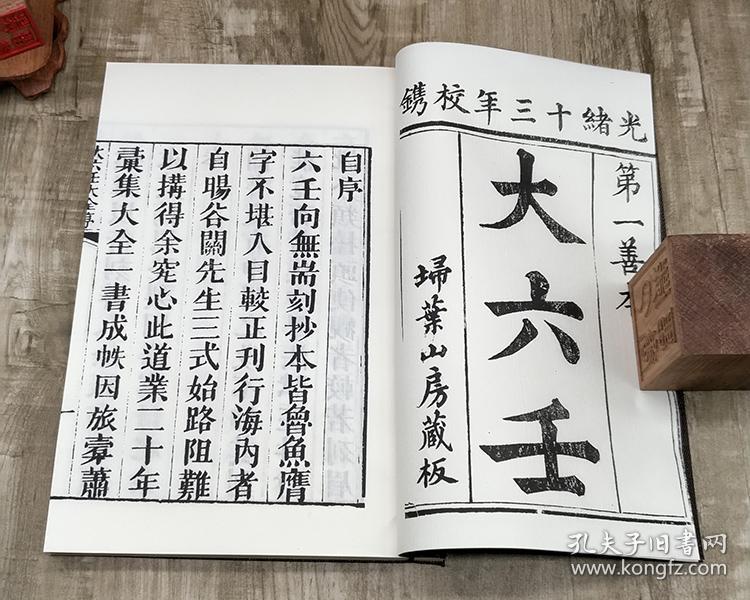 光緒十三年校鐫
第一善本
大六壬
埽葉山房藏板
自序
六壬向無耑刻抄本皆魯魚鴈
字不堪入目較正刊行海內者
自暘谷關先生三式始路阻難
以搆得余究心此道業二十年
彙集大全一書成帙因旅橐蕭
一
孔夫子旧书网
www.kongfz.com